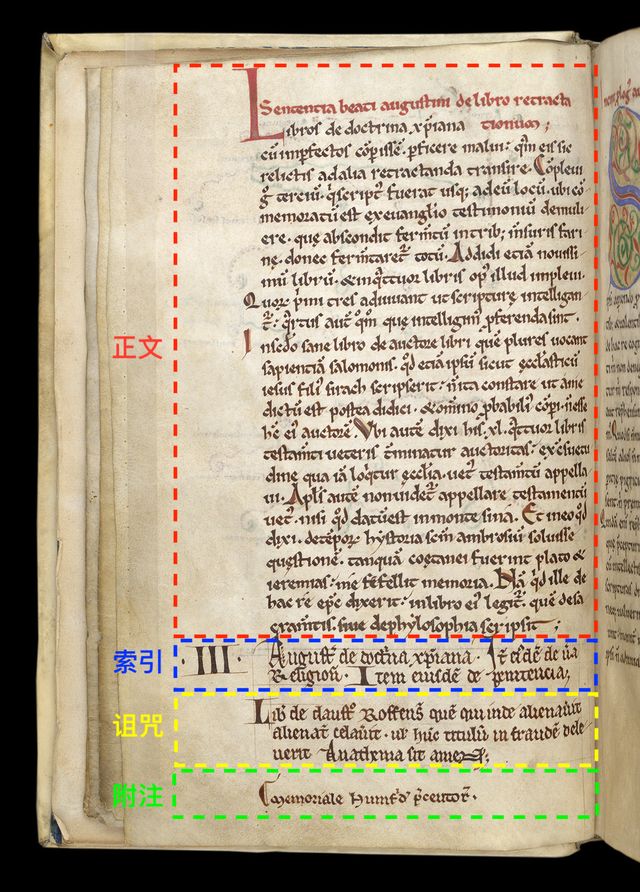 正文
Sententia beati augustini de libro retracta
Libros de doctrina xp̄iana tionum;
cū imp̄fectos cōp̄issē. p̄ficere malui. qm̄ eis sic
relictis ad alia retractanda transire. Cōpleui
g̊ terciū. q̇ script᾿ fuerat usq; ad eū locū. ubi cō
memoratū est ex euangl̄io testimoniū de muli
ere. quę abscondit ferm̄tū in trib; m̄suris fari
nę. donec ferm̄taret᾿ totū. Addidi etiā nouissi
mū librū. & in q̇ttuor libris op᾿ illud impleui.
Quoꝝ p̄mi tres adiuuant ut scripturę intelligan
t᾿. q̇rtus aut̄ qm̊ que intelligim᾿ p̄ferenda sint.
In sc̄do sane libro de auctore libri que plures uocant
sapientiā salomonis. qd̄ etiā ipsū sicut ęcclasticū
iesus filī sirach scripserit. n̄ ita constare ut a me
dictū est postea didici. & omnino p̄babiliꝰ cōp̄i. n̄ esse
hc̄ eī auctorē. Vbi autē dixi his. xl. q̇ttuor libris
testam̄ti ueteris t̄minatur auctoritas. ex c̄suetu
dine qua iā loq̇tur ęccl̄ia. uet᾿ testam̄tū appella
ui. Apl̄s autē non uidet᾿ appellare testamentū
uet᾿. nisi qd̄ datū est in monte sina. Et in eo qd̄
dixi. de tēpoꝝ hystoria sc̄m ambrosiū soluisse
quęstionē. tanquā coętanei fuerint plato &
ieremias. me fefellit memoria. Nā qd̄ ille de
hac re ep̄c dixerit. in libro eī legit᾿. quē de sa
cram̄tis siue de phylosophia scripsit;
索引
·III· August᾿ de doct᾿na xp̄iana. It̄ ei᾿dē de ū᾿a
Religion̄. Item eiusdē de penitencia;
诅咒
Lib᾿ de claust᾿o Roffens᾿ quē qui inde alienau᾿it
alienat̄ celau᾿it. ul᾿ hūc titulū in fraudē dele
uerit Anathema sit amen;
附注
Memoriale Hunf᾿d p̄centor᾿.